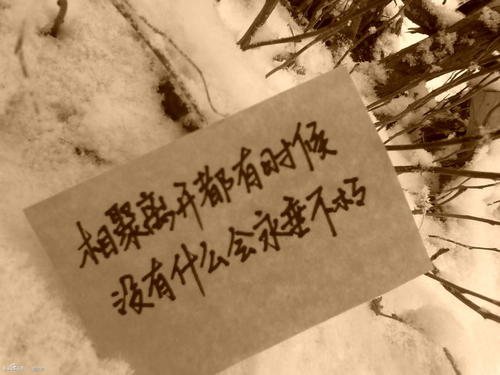 相聚离开都有时候
没有什么会永垂不朽